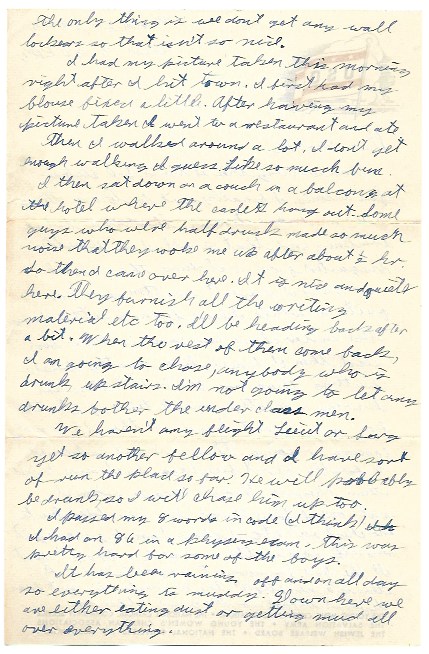 the only thing is we don't get any wall
lockers so that isn't so nice.
I had my picture taken this morning
right after I hit town. I first had my
blouse fixed a little. After having my
picture taken I went to a restaurant and ate
Then I walked around a lot. I don't get
enough walking I guess. Like so much bus.
I then sat down on a couch in a balcony at
the hotel where the cadets hang out. Some
guys who were half drunk made so much
noise that they woke me up after about ½ hr.
So then I came over here. It is nice and quiet
here. They furnish all the writing
material etc too. I'll be heading back after
a bit. When the rest of them come back,
I am going to chase, anybody who is
drunk up stairs. I'm not going to let any
drunks bother the under class men.
We haven't any flight Lieut or Sarg
yet so another fellow and I have sort
of run the plad so far. He will probbably
be drunk, so I will chase him up too.
I passed my 8 words in code (I think)
I had an 86 in a physics exam. This was
pretty hard for some of the boys.
It has been raining off and on all day
so everything is muddy. Down here we
are either eating dust or getting mud all
over everything.